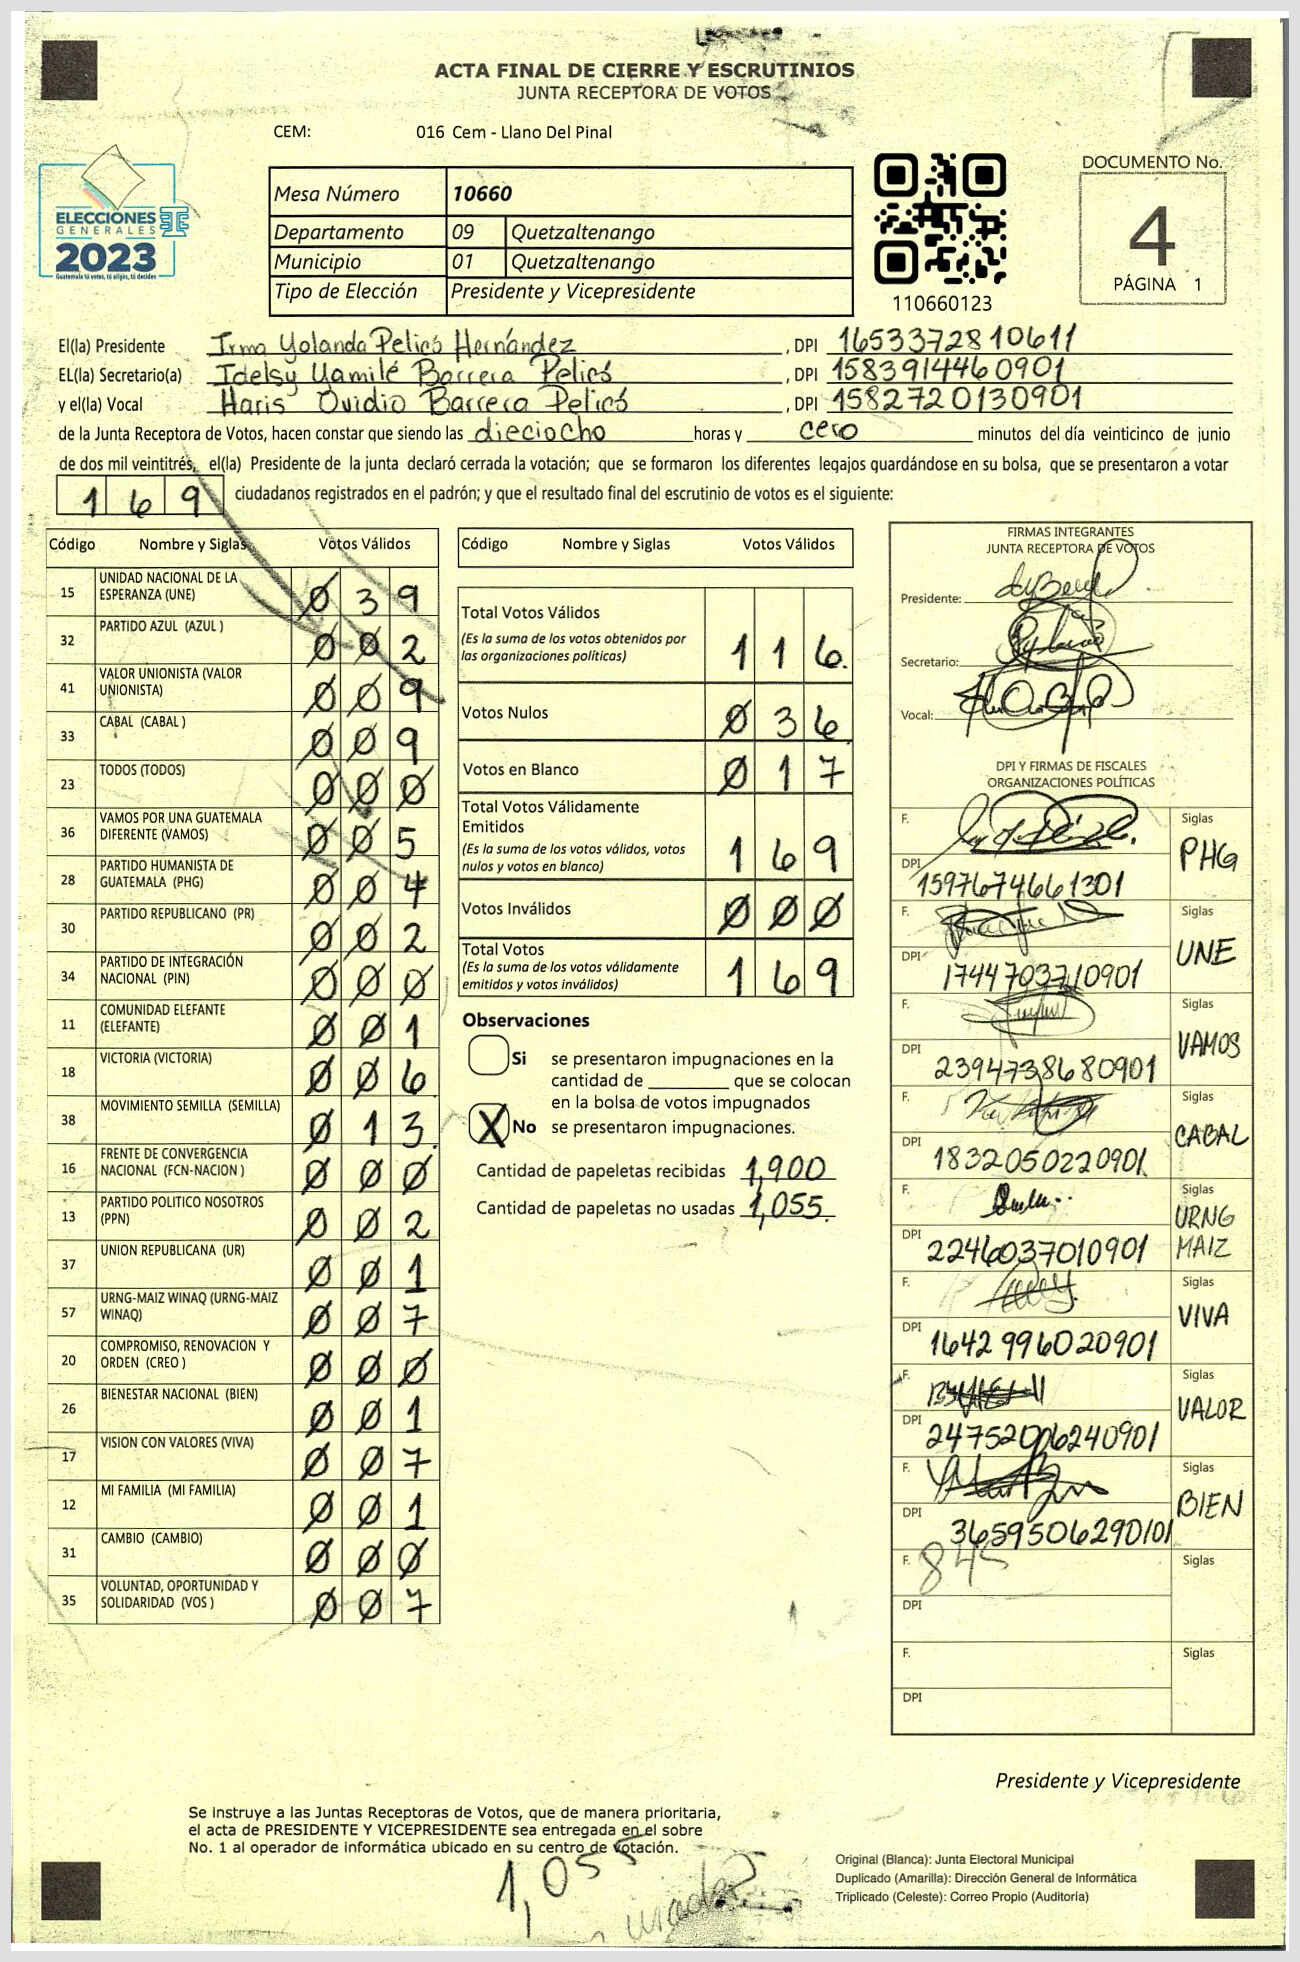 ACTA FINAL DE CIERRE Y ESCRUTINIOS
JUNTA RECEPTORA DE VOTOS
CEM: 016 Cem - Llano Del Pinal
ELECCIONES
GENERALES
2023
Guatemala tú votas, tú eliges, tú decides
Mesa Número 10660
Departamento 09 Quetzaltenango
Municipio 01 Quetzaltenango
Tipo de Elección Presidente y Vicepresidente
110660123
DOCUMENTO No.
4
PÁGINA 1
El(la) Presidente Irma Yolanda Pelicó Hernández, DPI 1653372810611
EL(la) Secretario(a) Idelsy Yamilé Barrera Pelicó, DPI 1583914460901
y el(la) Vocal Haris Ovidio Barrera Pelicó, DPI 1582720130901
de la Junta Receptora de Votos, hacen constar que siendo las dieciocho horas y cero minutos del día veinticinco de junio
de dos mil veintitrés, el(la) Presidente de la junta declaró cerrada la votación; que se formaron los diferentes legajos guardándose en su bolsa, que se presentaron a votar
169 ciudadanos registrados en el padrón; y que el resultado final del escrutinio de votos es el siguiente:
Código Nombre y Siglas Votos Válidos
15 UNIDAD NACIONAL DE LA ESPERANZA (UNE) 0 3 9
32 PARTIDO AZUL (AZUL ) 0 0 2
41 VALOR UNIONISTA (VALOR UNIONISTA) 0 0 9
33 CABAL (CABAL ) 0 0 9
23 TODOS (TODOS) 0 0 0
36 VAMOS POR UNA GUATEMALA DIFERENTE (VAMOS) 0 0 5
28 PARTIDO HUMANISTA DE GUATEMALA (PHG) 0 0 4
30 PARTIDO REPUBLICANO (PR) 0 0 2
34 PARTIDO DE INTEGRACIÓN NACIONAL (PIN) 0 0 0
11 COMUNIDAD ELEFANTE (ELEFANTE) 0 0 1
18 VICTORIA (VICTORIA) 0 0 6
38 MOVIMIENTO SEMILLA (SEMILLA) 0 1 3
16 FRENTE DE CONVERGENCIA NACIONAL (FCN-NACION ) 0 0 0
13 PARTIDO POLITICO NOSOTROS (PPN) 0 0 2
37 UNION REPUBLICANA (UR) 0 0 1
57 URNG-MAIZ WINAQ (URNG-MAIZ WINAQ) 0 0 7
20 COMPROMISO, RENOVACION Y ORDEN (CREO ) 0 0 0
26 BIENESTAR NACIONAL (BIEN) 0 0 1
17 VISION CON VALORES (VIVA) 0 0 7
12 MI FAMILIA (MI FAMILIA) 0 0 1
31 CAMBIO (CAMBIO) 0 0 0
35 VOLUNTAD, OPORTUNIDAD Y SOLIDARIDAD (VOS ) 0 0 7
Código Nombre y Siglas Votos Válidos
Total Votos Válidos 1 1 6
(Es la suma de los votos obtenidos por
las organizaciones políticas)
Votos Nulos 0 3 6
Votos en Blanco 0 1 7
Total Votos Válidamente
Emitidos 1 6 9
(Es la suma de los votos válidos, votos
nulos y votos en blanco)
Votos Inválidos 0 0 0
Total Votos 1 6 9
(Es la suma de los votos válidamente
emitidos y votos inválidos)
Observaciones
Si se presentaron impugnaciones en la
cantidad de ________ que se colocan
en la bolsa de votos impugnados
X No se presentaron impugnaciones.
Cantidad de papeletas recibidas 1,900
Cantidad de papeletas no usadas 1,055
FIRMAS INTEGRANTES
JUNTA RECEPTORA DE VOTOS
Presidente:
Secretario:
Vocal:
DPI Y FIRMAS DE FISCALES
ORGANIZACIONES POLÍTICAS
F. Siglas PHG
DPI 1597674661301
F. Siglas UNE
DPI 1744703710901
F. Siglas VAMOS
DPI 2394738680901
F. Siglas CABAL
DPI 1832050220901
F. Siglas URNG MAIZ
DPI 2246037010901
F. Siglas VIVA
DPI 1642996020901
F. Siglas VALOR
DPI 24752006240901
F. Siglas BIEN
DPI 3659506290101
F. 845 Siglas
DPI
F. Siglas
DPI
Presidente y Vicepresidente
Se instruye a las Juntas Receptoras de Votos, que de manera prioritaria,
el acta de PRESIDENTE Y VICEPRESIDENTE sea entregada en el sobre
No. 1 al operador de informática ubicado en su centro de votación.
1,055
Original (Blanca): Junta Electoral Municipal
Duplicado (Amarilla): Dirección General de Informática
Triplicado (Celeste): Correo Propio (Auditoría)